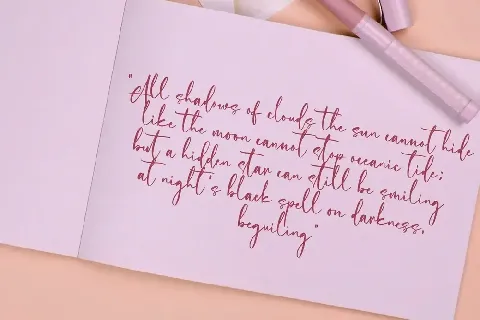 "All shadows of clouds the sun cannot hide
like the moon cannot stop oceanic tide;
but a hidden star can still be smiling
at night's black spell on darkness,
beguiling"